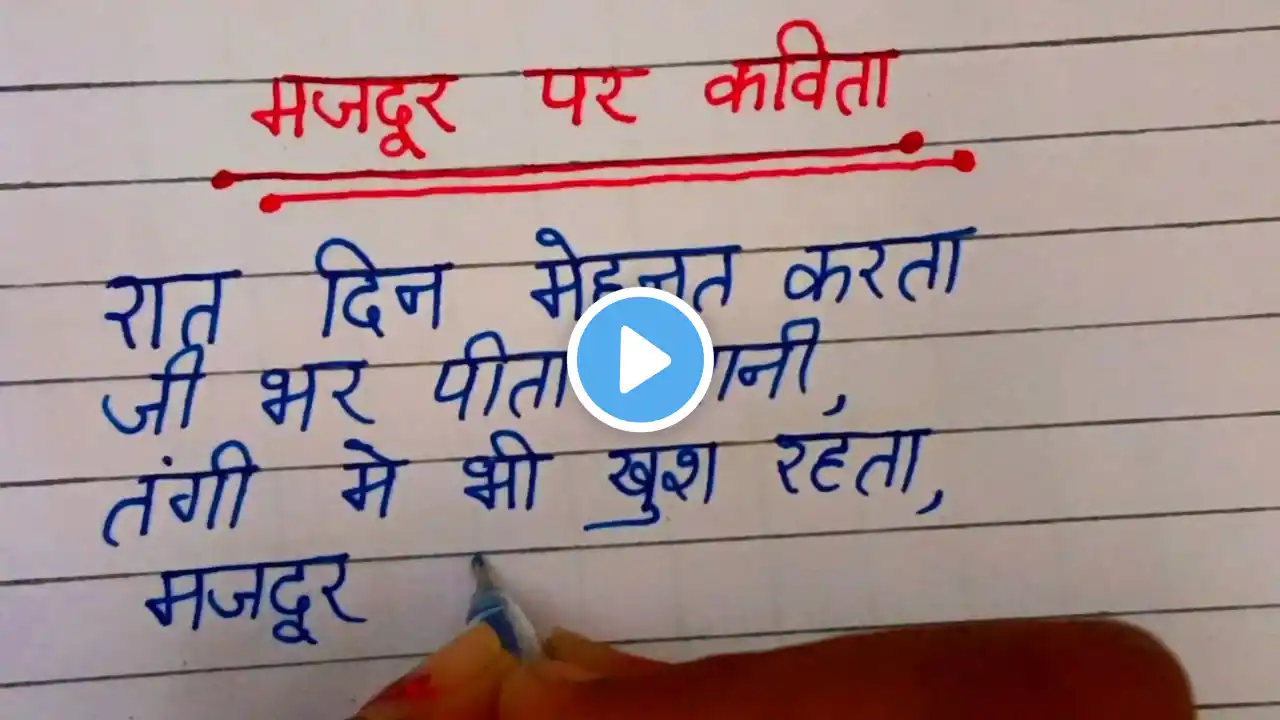 मजदूर पर कविता
रात दिन मेहनत करता
जी भर पीता
तंगी मे भी खुश रहता,
मजदूर